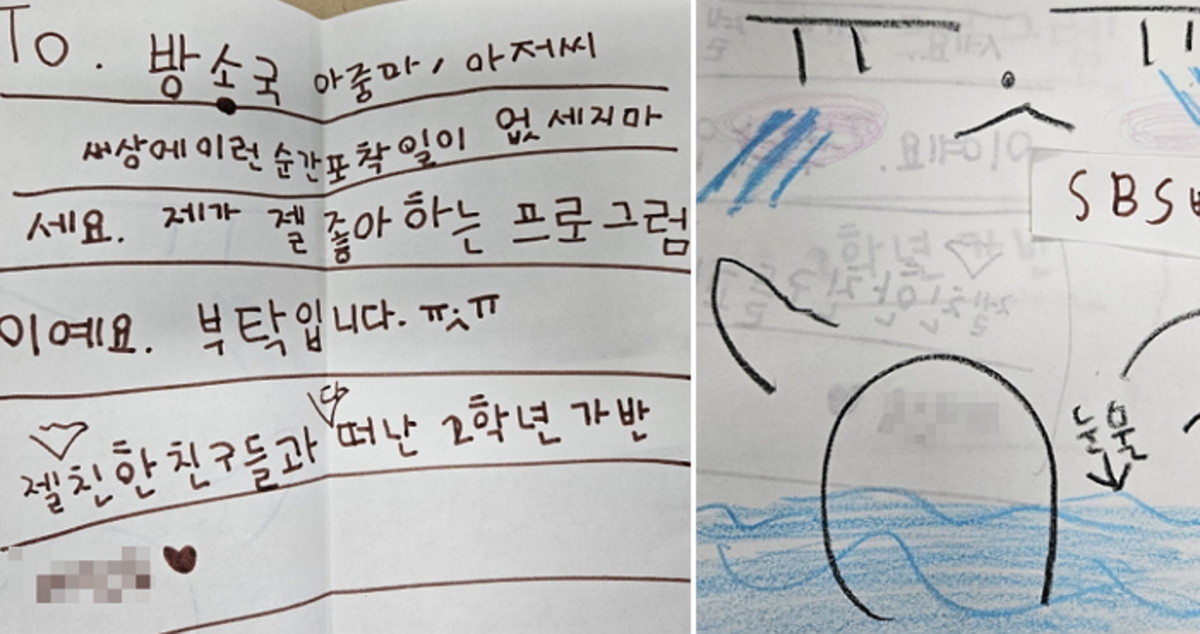 To. 방소국 아줌마, 아저씨
새상에이런 순간포착 일이 없세지마
세요. 제가 젤 좋아하는 프로그럼
이예요. 부탁입니다. ㅠㅅㅠ
젤친한친구들과 떠난 2학년 가반
SBS
눈물